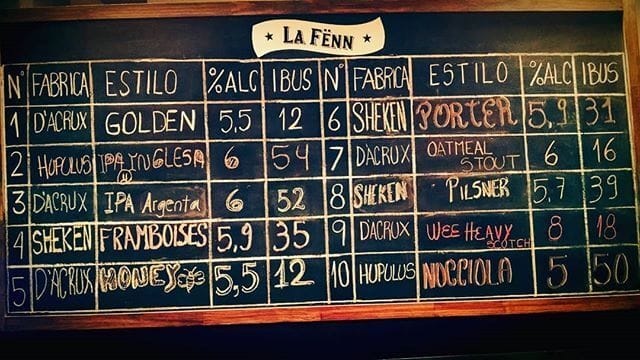 LA FËNN
N° FABRICA ESTILO %ALC IBUS N° FABRICA ESTILO %ALC IBUS
1 D'ACRUX GOLDEN 5,5 12 6 SHEKEN PORTER 5,9 31
2 HUPULUS IPA INGLESA 6 54 7 D'ACRUX OATMEAL STOUT 6 16
3 D'ACRUX IPA Argenta 6 52 8 SHEKEN PILSNER 5,7 39
4 SHEKEN FRAMBOISES 5,9 35 9 DACRUX WEE HEAVY SCOTCH 8 18
5 D'ACRUX HONEY 5,5 12 10 HUPULUS NOCCIOLA 5 50